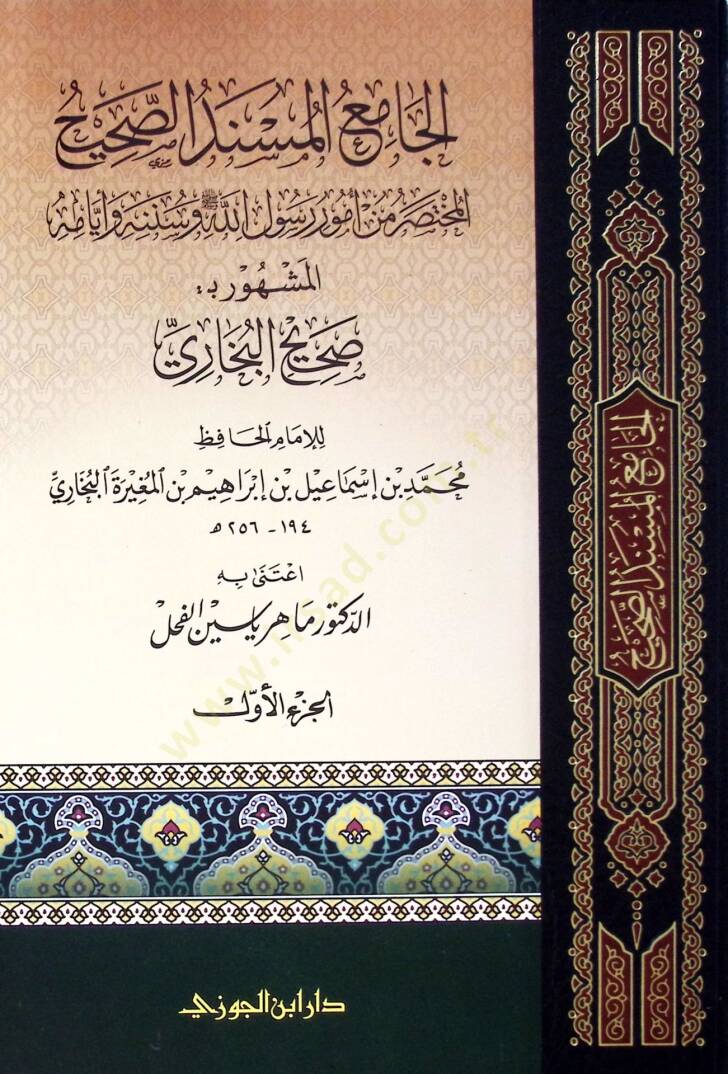 الجَامِعُ المُسْنَدُ الصَّحِيحُ
المُخْتَصَرُ مِنْ أُمُورِ رَسُولِ اللهِ ﷺ وَسُنَنِهِ وَأَيَّامِهِ
المَشْهُوْر بـ:
صَحِيْحُ البُخَارِيِّ
لِلإِمَامِ الحَافِظِ
مُحَمَّد بْن إِسْمَاعِيل بْن إِبْرَاهِيم بْن المُغِيرَة البُخَارِيِّ
١٩٤ - ٢٥٦ هـ
اعْتَنَى بِهِ
الدكتور مَاهِر يَاسين الفحل
الجزء الأَوّل
دار ابن الجوزي
الجَامِعُ المُسْنَدُ الصَّحِيحُ